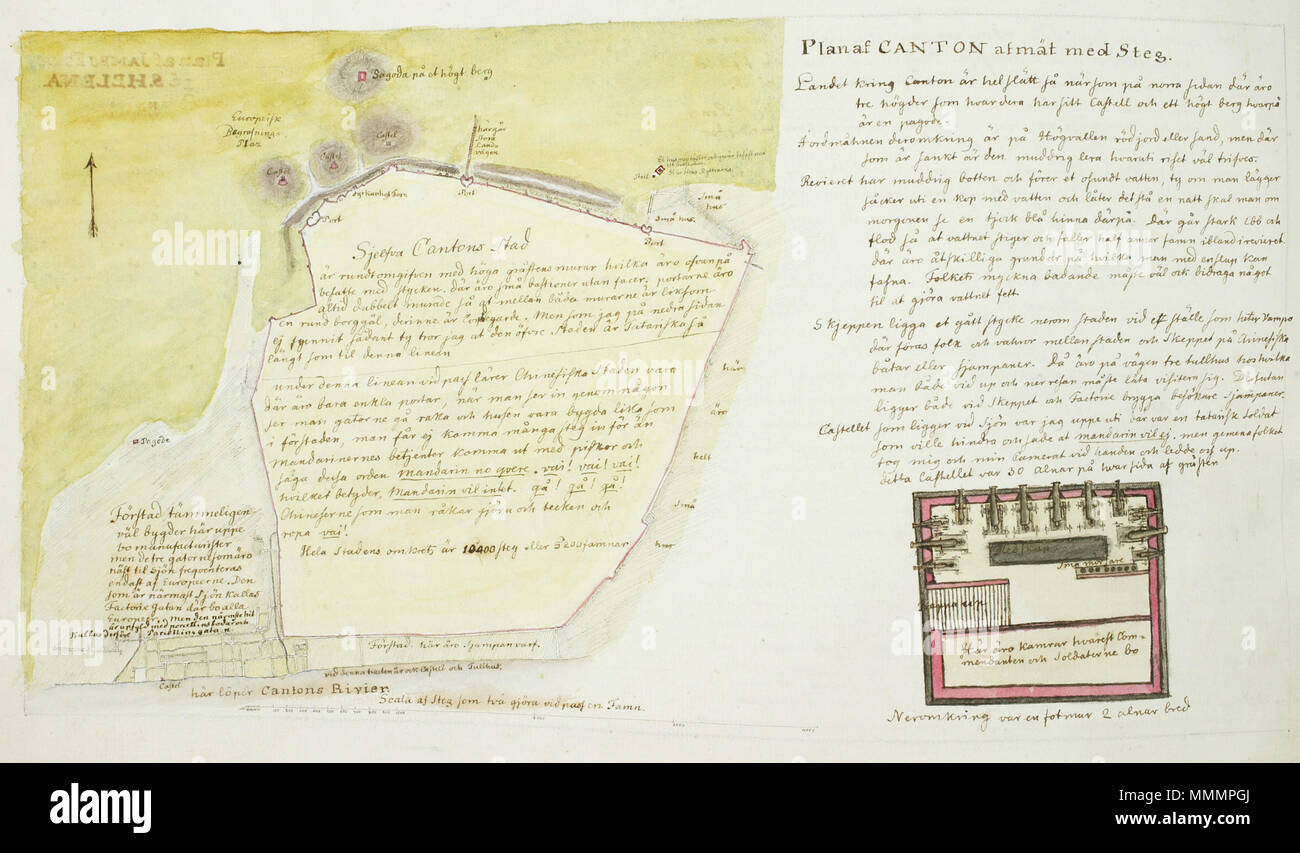 Plan af CANTON afmät med Steg.
Landet kring Canton är helslätt så när som på norra sidan där äro
tre högder som hvardera har sitt Castell och ett högt berg hvarpå
är en pagode.
Jordmåhnen deromkring är på Högvallen röd jord eller sand, men där
som är sankt är den muddrig lera hvaruti riset väl trifves.
Revieret har muddrig botten och förer et osundt vatten, ty om man lägger
såcker uti en kop med vatten och låter det stå en natt skal man om
morgonen se en tjock blå hinna därpå. Där går stark Ebb och
flod så at vattnet stiger och faller half annor famn ibland i reviret
där äro åtskilliga grund där på hvilka man med en stup kan
fastna. Folkets myckna badande måste väl ock bidraga något
til at gjöra vattnet fett
Skjeppen ligga et gått stycke nerom staden vid ett ställe som heter Vampo
där föras folk och vahror mellan staden och Skeppet på Chinesiska
båtar eller sjampaner. Då äro på vägen tre tullhus hos hvilka
man både vid up och ner resan måste låta visitera sig. Desutan
ligger både vid Skeppet och Factorie brygga besökare sjampaner.
Castellet som ligger vid Sjön var jag uppe uti där var en tatarisk Soldat
som ville hindra och sade at mandarin vil ej, men gemena folket
tog mig och min Camerat vid handen och ledde oss up.
detta Castellet var 30 alnar på hvar sida af gråsten
Små mörsare
Trappa up
Här äro kamrar hvarest Com-
mendanten och Soldaterne bo
Neromkring var en fot mur 2 alnar bred
Plan af
S. HELENA
Pagoda på et högt berg
Europeisk
Begrafnings-
Plaz
Castel
Castel
Castel
här går
stora
Lands
vägen
Port
Port
Port
Små
hus
Små hus
Sjelfva Cantons Stad
är rundtomgifven med höga gråstens murar hvilka äro ofvan på
besatte med stycken. där äro små bastioner utan facer, portarne äro
altid dubbelt murade så at mellan båda murarne är liksom
en rund borggål, derinne är Corps de garde. Men som jag på nedra sidan
ej funnit sådant ty tror jag at den öfvre Staden är Tatariska så
långt som til denna linean
under denna linean vid pass lärer Chinesiska Staden vara
där äro bara enkla portar, när man ser in genom någon
ser man gatorne gå raka och husen vara bygda lika som
i förstaden, man får ej komma många steg in för än
Mandarinernes betjenter komma ut med piskor och
säga dessa orden. mandarin no qvere. vai! vai! vai!
hvilket betyder, Mandarin vil intet. gå! gå! gå!
Chineserne som man råkar gjöra och tecken och
ropa vai!
Hela Stadens omkrets är 10400 steg eller 5200 famnar
här
äro
helt
Små
hus
Pagode
Förstad tämmeligen
väl bygder här uppe
bo manufacturister
men de tre gatorne som äro
näst til Sjön freqventeras
endast af Europeerne. Den
som är närmast Sjön Kallas
Factorie Gatan där bo alla
Europeer. Men den närmste hit
är upfyld med porcellins bodar och
Kallas derföre Porcellins gatan
Förstad. här äro Sjampan varf.
vid denna trakten är ock Castell och Tullhus.
Castel
här löper Cantons Rivier
Scala af Steg som två gjöra vid pass en Famn.
alamy
a
alamy
a
alamy
Image ID: MMMPGJ
www.alamy.com